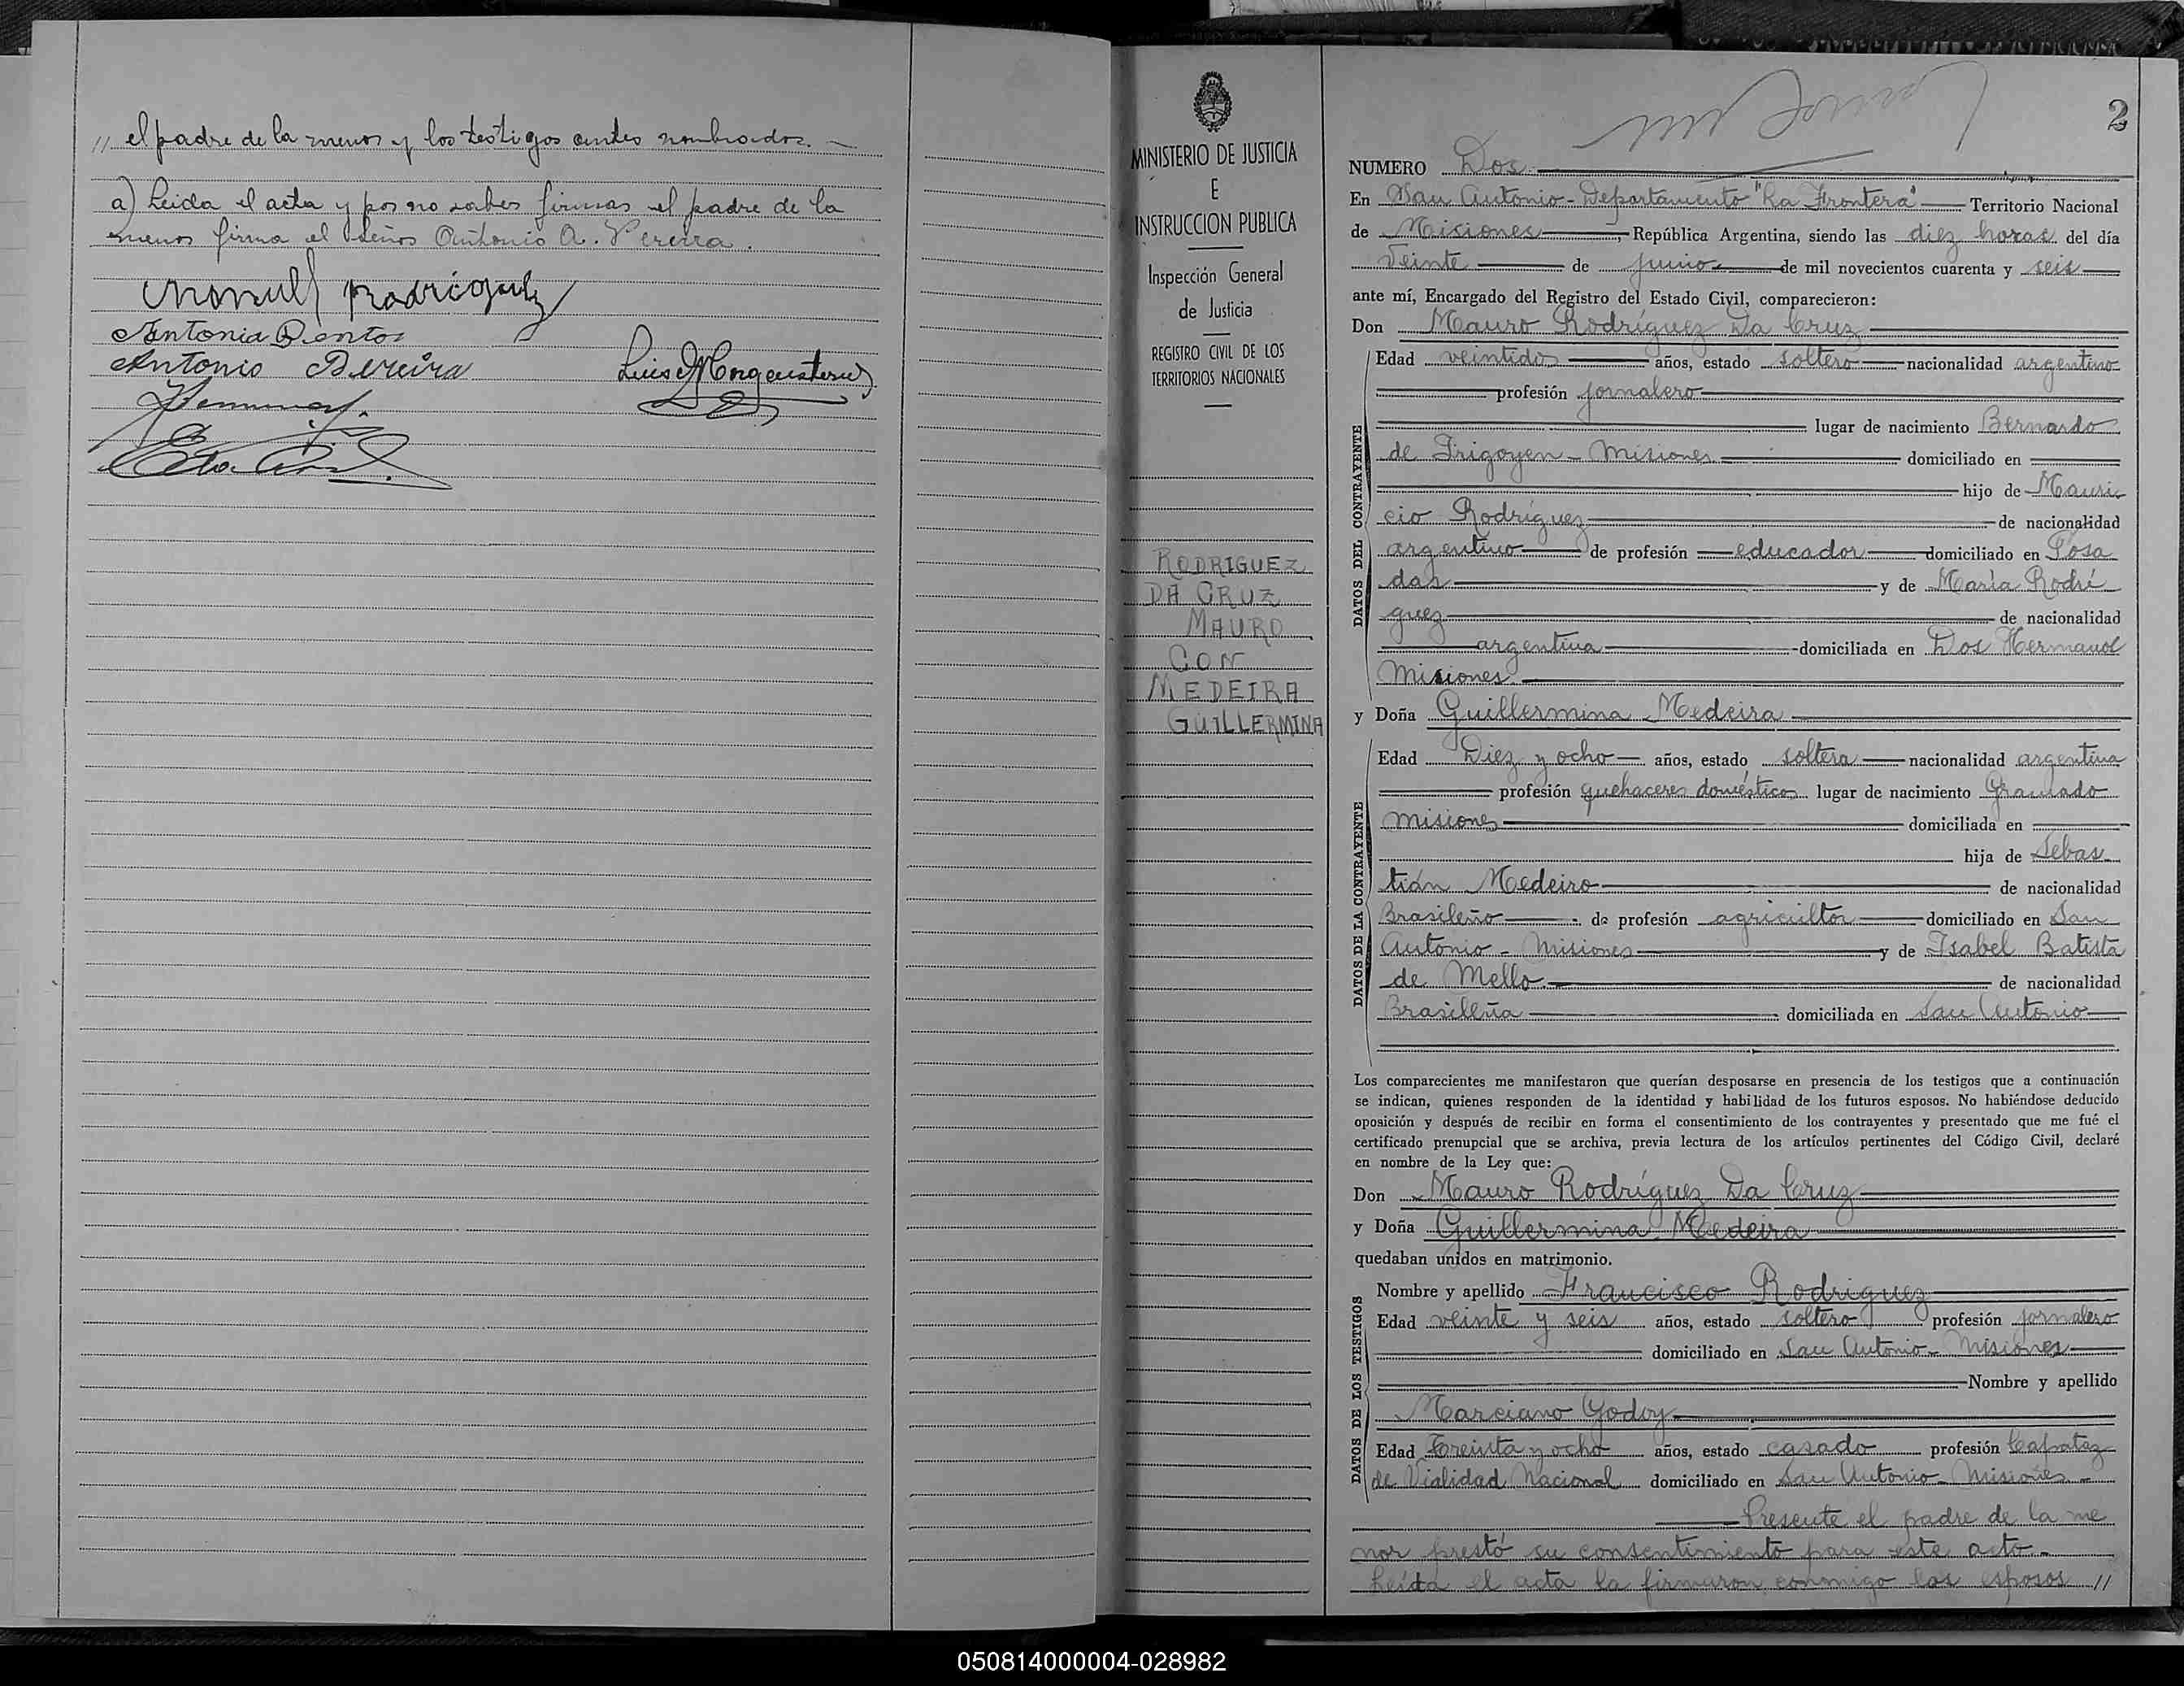 // el padre de la menor y los testigos antes nombrados. —
a) Leida el acta y por no saber firmar el padre de la
menor firma el señor Antonio A. Pereira.
Manuel Rodríguez
Antonia Dontos
Antonio Pereira
Luis Morgenstern
MINISTERIO DE JUSTICIA
E
INSTRUCCION PUBLICA
Inspección General
de Justicia
REGISTRO CIVIL DE LOS
TERRITORIOS NACIONALES
RODRIGUEZ
DA CRUZ
MAURO
CON
MEDEIRA
GUILLERMINA
2
NUMERO Dos
En San Antonio - Departamento "La Frontera" Territorio Nacional
de Misiones, República Argentina, siendo las diez horas del día
Veinte de junio de mil novecientos cuarenta y seis
ante mí, Encargado del Registro del Estado Civil, comparecieron:
Don Mauro Rodríguez Da Cruz
DATOS DEL CONTRAYENTE
Edad veintidos años, estado soltero nacionalidad argentino
profesión jornalero
lugar de nacimiento Bernardo
de Irigoyen - Misiones domiciliado en
hijo de Mauri
cio Rodríguez de nacionalidad
argentino de profesión educador domiciliado en Posa
das y de María Rodrí
guez de nacionalidad
argentina domiciliada en Dos Hermanos
Misiones.
y Doña Guillermina Medeira
DATOS DE LA CONTRAYENTE
Edad Diez y ocho años, estado soltera nacionalidad argentina
profesión quehaceres domésticos lugar de nacimiento Gramado
Misiones domiciliada en
hija de Sebas
tián Medeiro de nacionalidad
Brasileño de profesión agricultor domiciliado en San
Antonio - Misiones y de Isabel Batista
de Mello. de nacionalidad
Brasileña domiciliada en San Antonio
Los comparecientes me manifestaron que querían desposarse en presencia de los testigos que a continuación
se indican, quienes responden de la identidad y habilidad de los futuros esposos. No habiéndose deducido
oposición y después de recibir en forma el consentimiento de los contrayentes y presentado que me fué el
certificado prenupcial que se archiva, previa lectura de los artículos pertinentes del Código Civil, declaré
en nombre de la Ley que:
Don Mauro Rodríguez Da Cruz
y Doña Guillermina Medeira
quedaban unidos en matrimonio.
DATOS DE LOS TESTIGOS
Nombre y apellido Francisco Rodriguez
Edad veinte y seis años, estado soltero profesión jornalero
domiciliado en San Antonio - Misiones
Nombre y apellido
Marciano Godoy
Edad Treinta y ocho años, estado casado profesión Capataz
de Vialidad Nacional domiciliado en San Antonio - Misiones -
Presente el padre de la me
nor prestó su consentimiento para este acto. -
Leída el acta la firmaron conmigo los esposos //
050814000004-028982